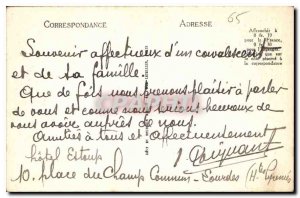 CORRESPONDANCE
ADRESSE
65
Affranchir à
Souvenir affectueux d'un convalescent
et de sa famille.
Que de fois nous prenons plaisir à parler
de vous et comme nous serions heureux de
vous avoir auprès de nous.
Amitiés à tous et Affectueusement
hôtel Estoup
10, place du Champ Commun - Lourdes (Htes Pyrénées)